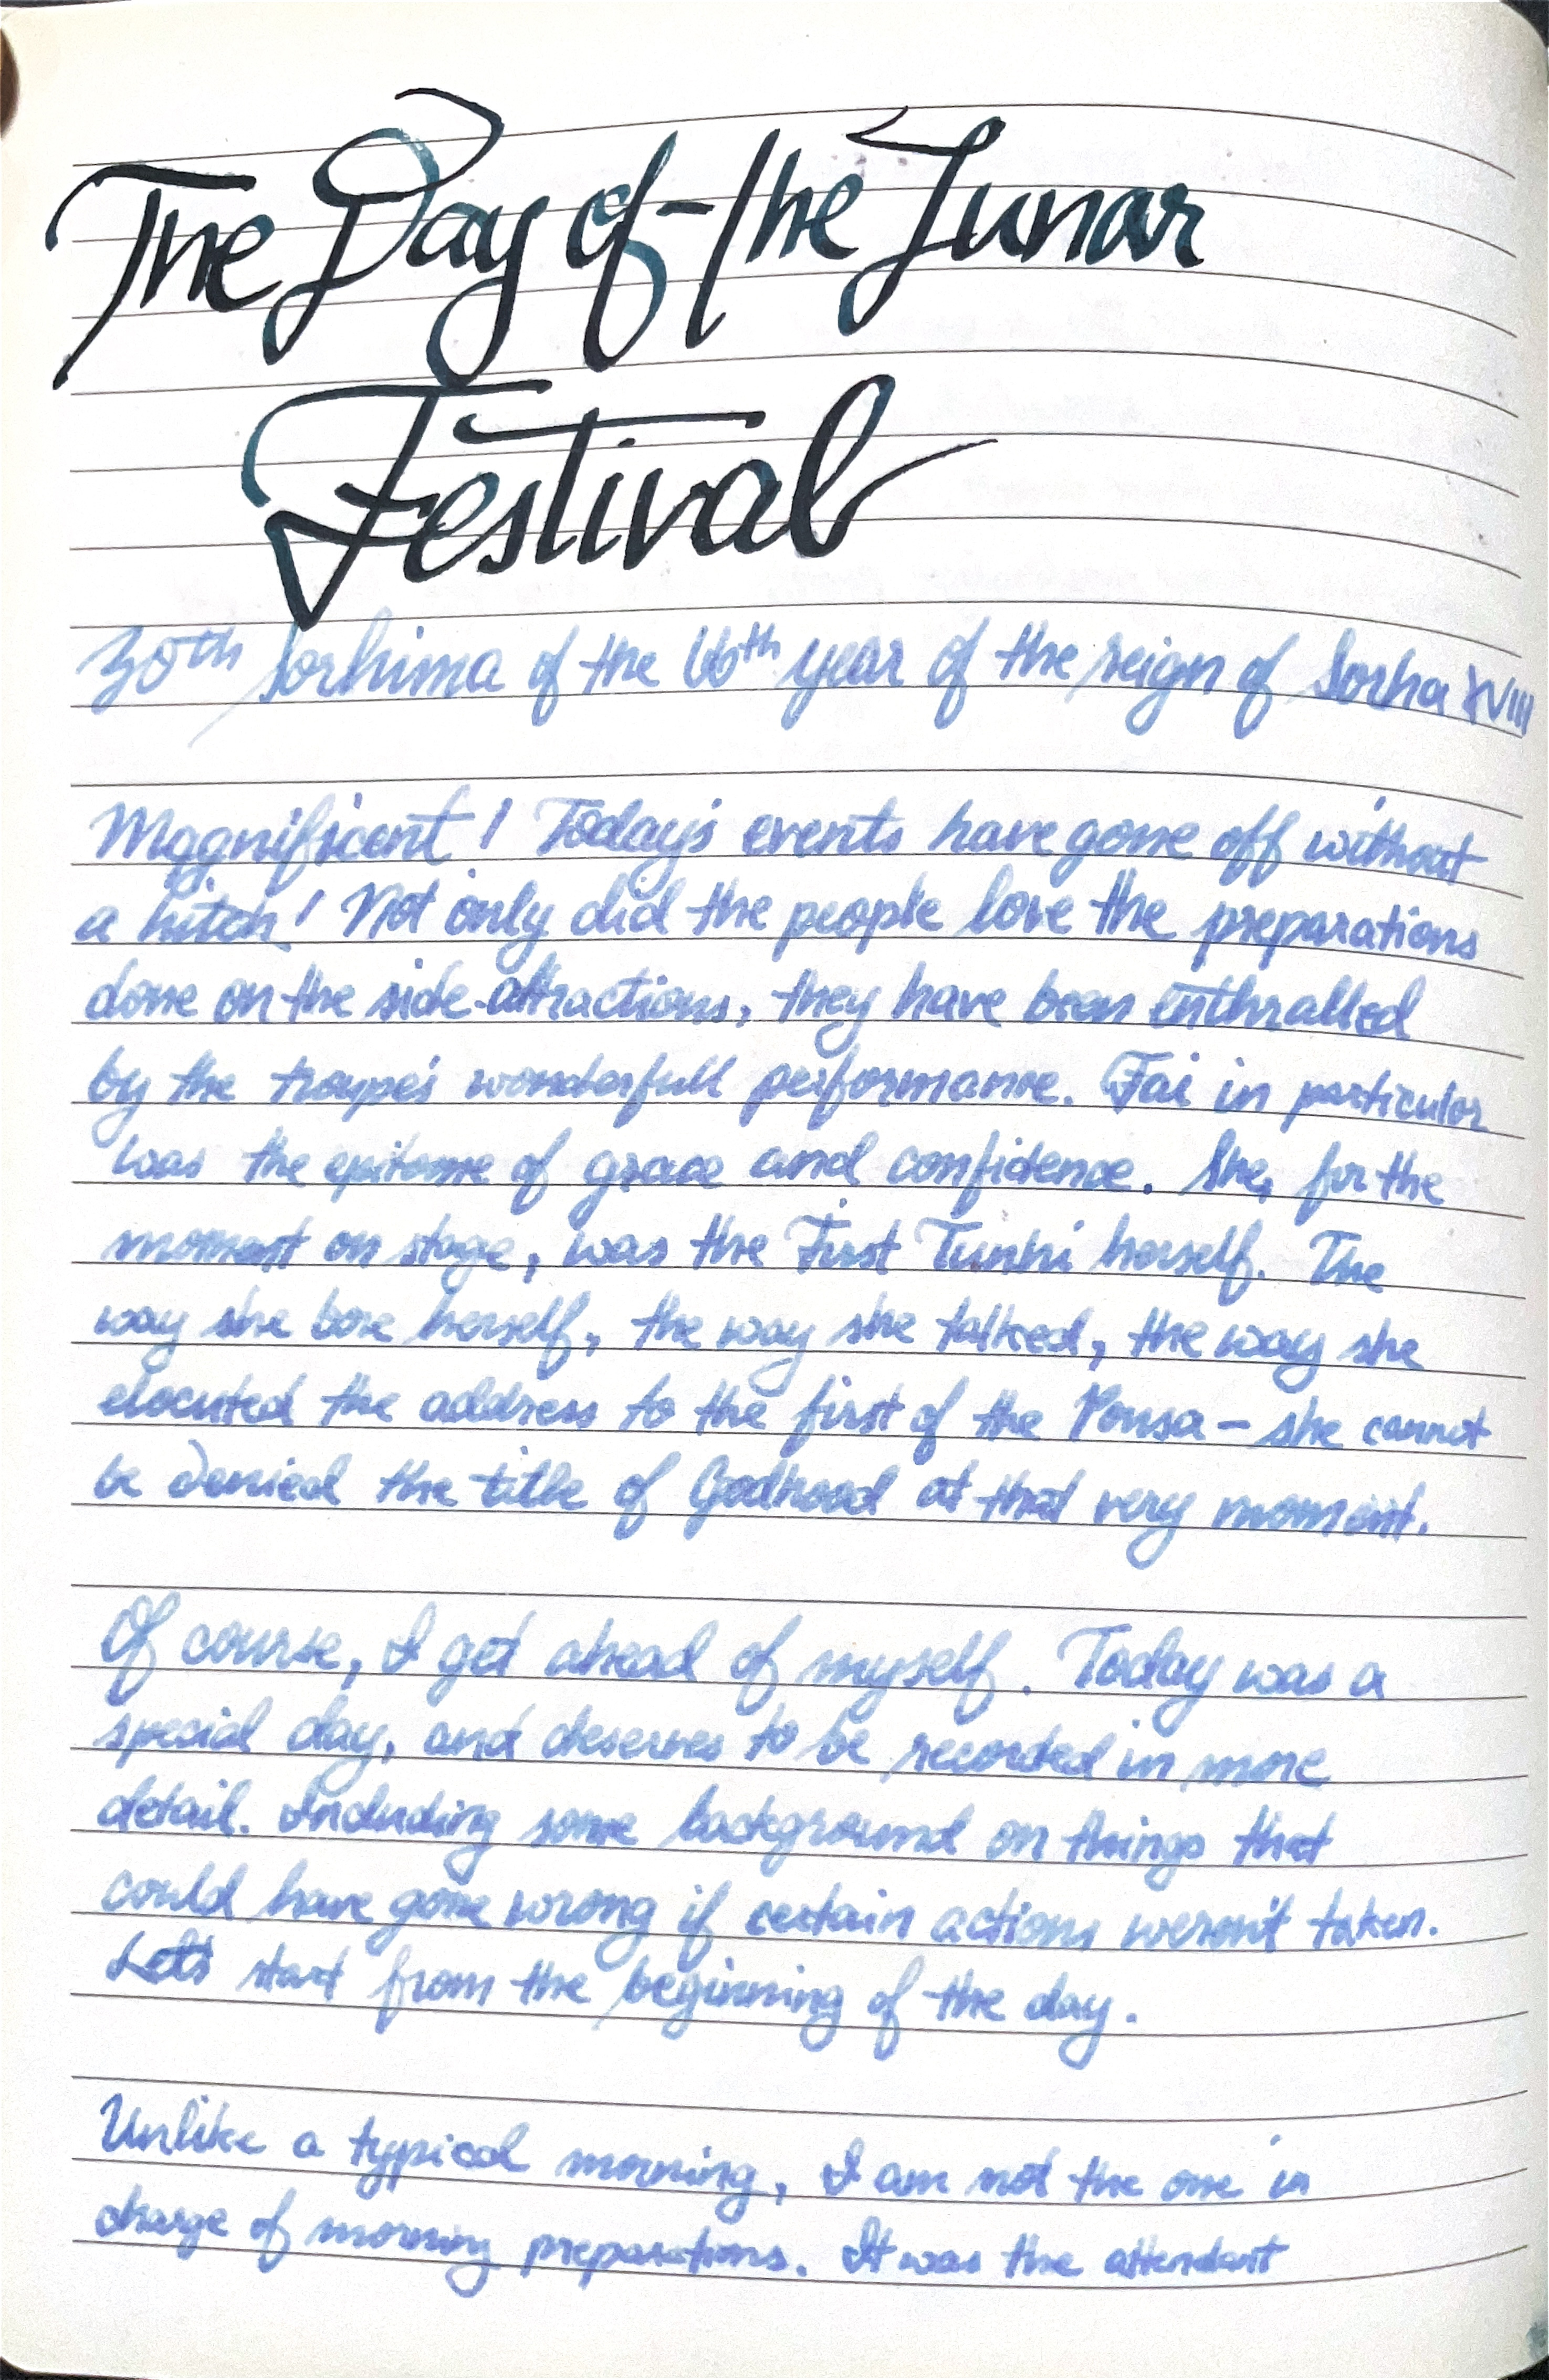 The Day of the Lunar
Festival
30th Sorhima of the 16th year of the reign of Sorha XVIII
Magnificent! Today's events have gone off without
a hitch! Not only did the people love the preparations
done on the side-attractions, they have been enthralled
by the troupe's wonderfull performance. Fai in particular
was the epitome of grace and confidence. She, for the
moment on stage, was the First Tunhi herself. The
way she bore herself, the way she talked, the way she
elocuted the address to the first of the Ponsa - she cannot
be denied the title of Godhood at that very moment.
Of course, I get ahead of myself. Today was a
special day, and deserves to be recorded in more
detail. Including some background on things that
could have gone wrong if certain actions weren't taken.
Let's start from the beginning of the day.
Unlike a typical morning, I am not the one in
charge of morning preparations. It was the attendant